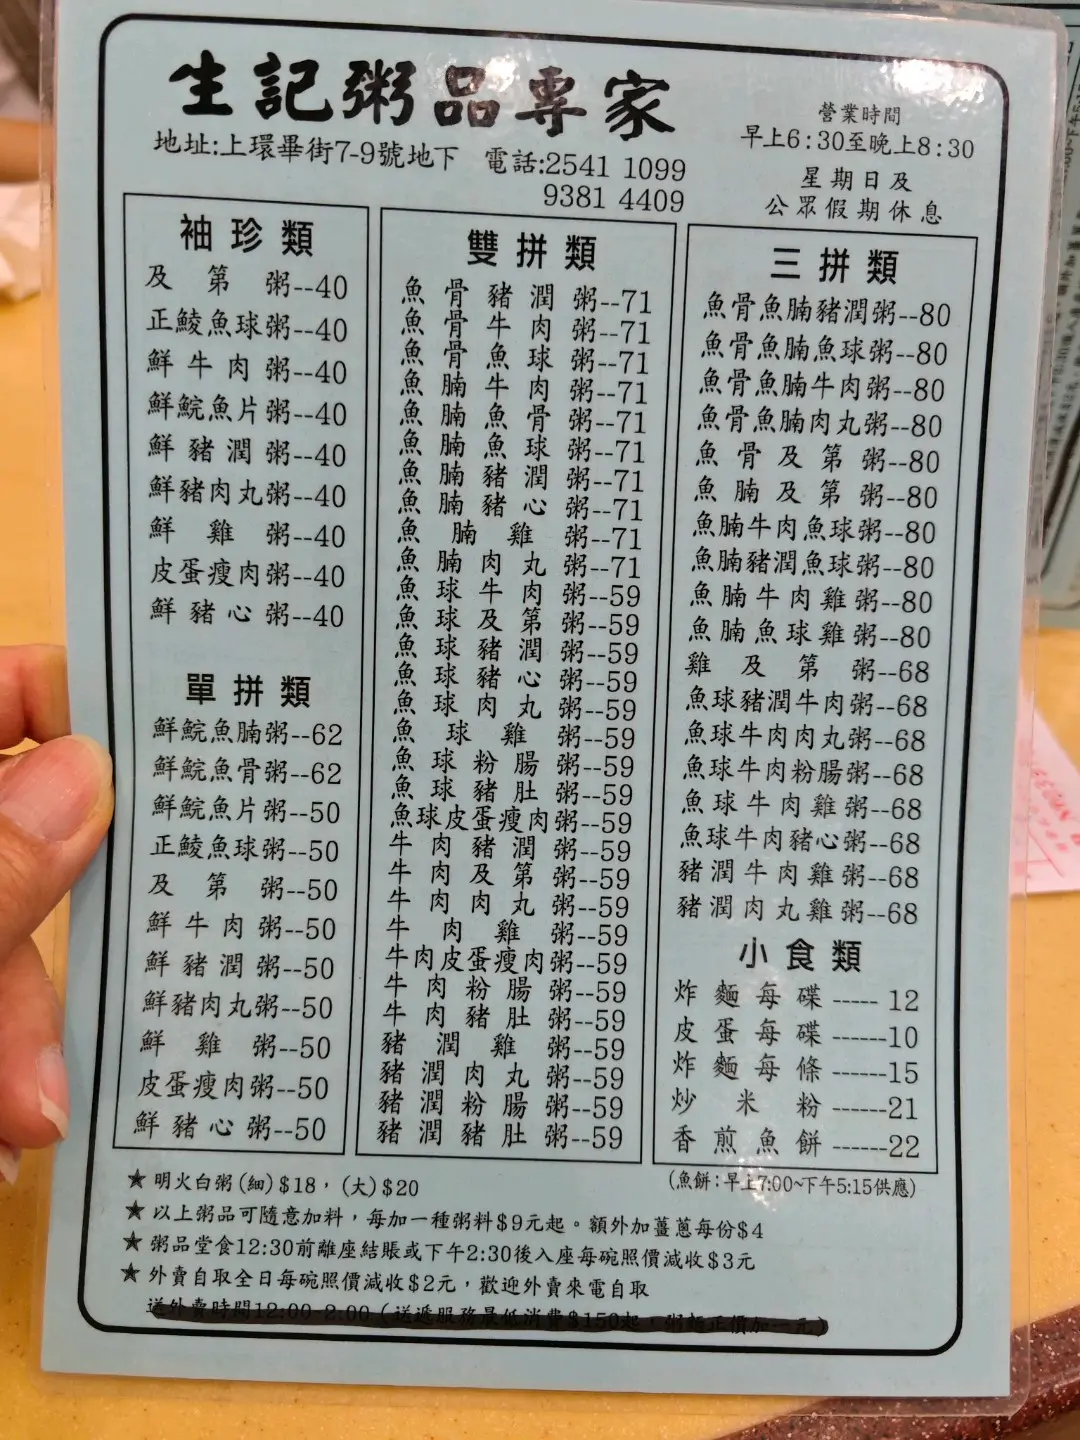 生記粥品專家
地址:上環畢街7-9號地下 電話:2541 1099
9381 4409
營業時間
早上6:30至晚上8:30
星期日及
公眾假期休息
袖珍類
及第粥--40
正鯪魚球粥--40
鮮牛肉粥--40
鮮鯇魚片粥--40
鮮豬潤粥--40
鮮豬肉丸粥--40
鮮雞粥--40
皮蛋瘦肉粥--40
鮮豬心粥--40
單拼類
鮮鯇魚腩粥--62
鮮鯇魚骨粥--62
鮮鯇魚片粥--50
正鯪魚球粥--50
及第粥--50
鮮牛肉粥--50
鮮豬潤粥--50
鮮豬肉丸粥--50
鮮雞粥--50
皮蛋瘦肉粥--50
鮮豬心粥--50
雙拼類
魚骨豬潤粥--71
魚骨牛肉粥--71
魚骨魚球粥--71
魚腩牛肉粥--71
魚腩魚骨粥--71
魚腩魚球粥--71
魚腩豬潤粥--71
魚腩豬心粥--71
魚腩雞粥--71
魚腩肉丸粥--71
魚球牛肉粥--59
魚球及第粥--59
魚球豬潤粥--59
魚球豬心粥--59
魚球肉丸粥--59
魚球雞粥--59
魚球粉腸粥--59
魚球豬肚粥--59
魚球皮蛋瘦肉粥--59
牛肉豬潤粥--59
牛肉及第粥--59
牛肉肉丸粥--59
牛肉雞粥--59
牛肉皮蛋瘦肉粥--59
牛肉粉腸粥--59
牛肉豬肚粥--59
豬潤雞粥--59
豬潤肉丸粥--59
豬潤粉腸粥--59
豬潤豬肚粥--59
三拼類
魚骨魚腩豬潤粥--80
魚骨魚腩魚球粥--80
魚骨魚腩牛肉粥--80
魚骨魚腩肉丸粥--80
魚骨及第粥--80
魚腩及第粥--80
魚腩牛肉魚球粥--80
魚腩豬潤魚球粥--80
魚腩牛肉雞粥--80
魚腩魚球雞粥--80
雞及第粥--68
魚球豬潤牛肉粥--68
魚球牛肉肉丸粥--68
魚球牛肉粉腸粥--68
魚球牛肉雞粥--68
魚球牛肉豬心粥--68
豬潤牛肉雞粥--68
豬潤肉丸雞粥--68
小食類
炸麵每碟-----12
皮蛋每碟------10
炸麵每條------15
炒米粉------21
香煎魚餅------22
(魚餅:早上7:00~下午5:15供應)
★明火白粥(細)$18,(大)$20
★以上粥品可隨意加料,每加一種粥料$9元起。額外加薑蔥每份$4
★粥品堂食12:30前離座結賬或下午2:30後入座每碗照價減收$3元
★外賣自取全日每碗照價減收$2元,歡迎外賣來電自取
送外賣時間12:00-2:00(送遞服務最低消費$150起,粥麵正價加一元)